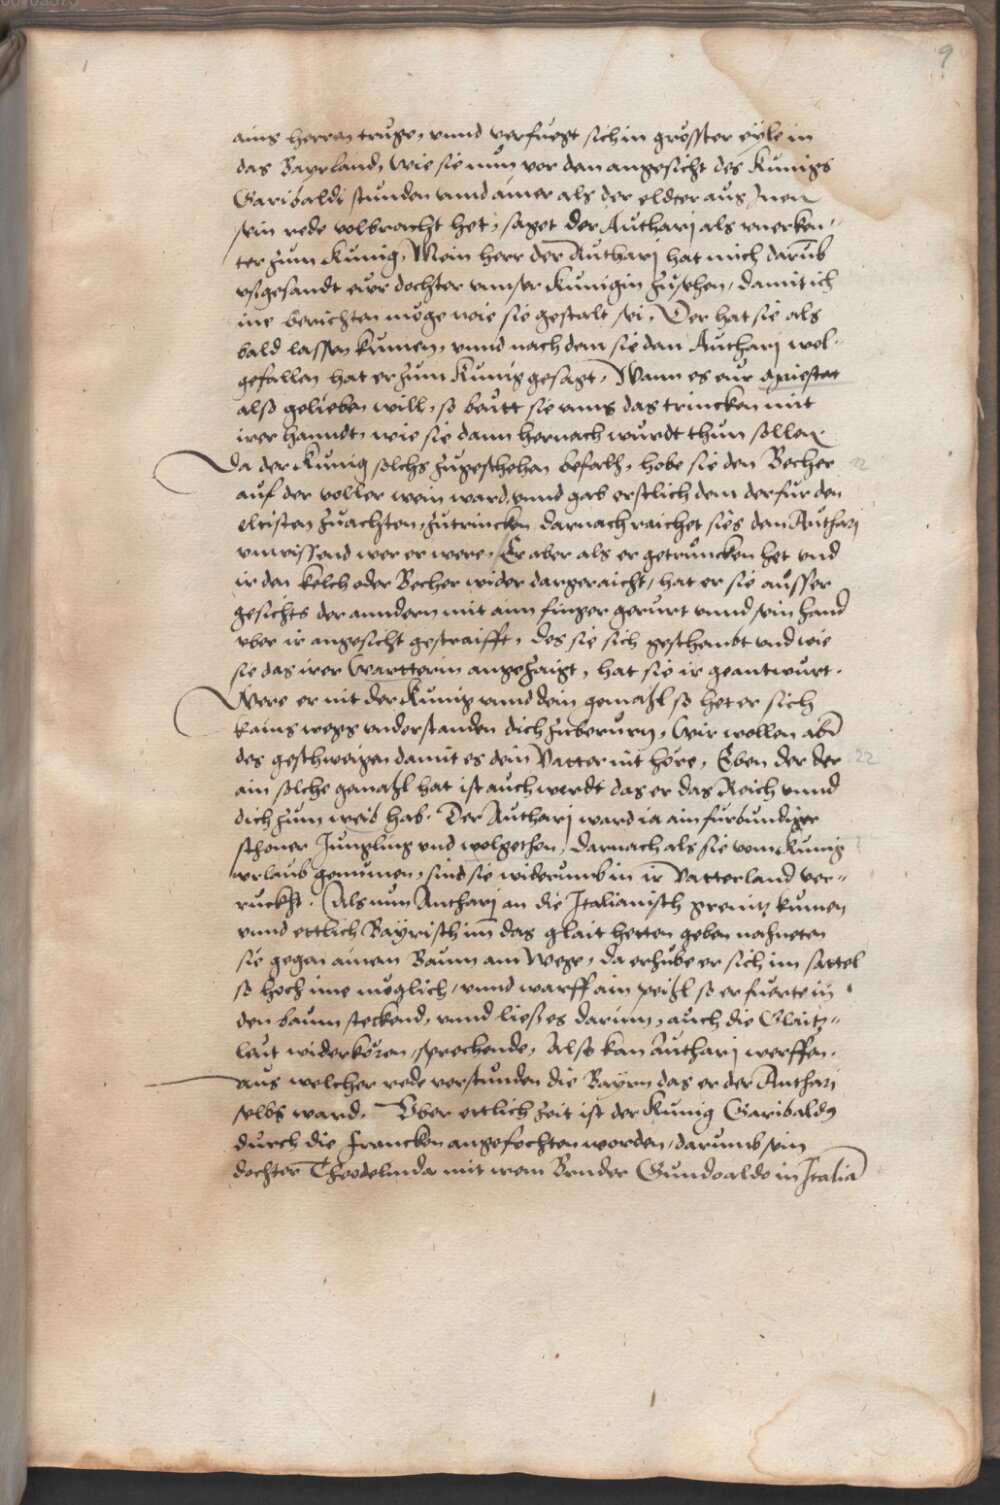 9
ains herren truge, vnnd verfuegt sich in grösster eyle in
das Bayrland, Wie sie nun vor dem angesicht des Kunigs
Garibaldi stunden vnnd ainer als der eldter aus Inen
sein rede volbracht het, saget der Authari als vnerken-
ter zum Kunig, Mein herr der Authari hat mich darumb
ausgesandt eur dochter vnnser Kunigin zusehen, damit ich
ine berichten müge wie sie gestalt sei, Der hat sie als
bald lassen kumen, vnnd nach dem sie dem Authari wol-
gefallen hat er zum Kunig gesagt, Wann es eur maiestat
also gelieben will, so beutt sie vnns das trincken mit
irer hanndt, wie sie dann hernach wurdt thun sollen.
Da der Kunig solchs zugeschehen befalh, hebe sie den Becher
auf der voller wein ward, vnnd gab erstlich dem der fur den
eltisten zuachten, zutrincken, darnach raichet sies dem Authari
vnwissend wer er were, Er aber als er getruncken het vnd
ir den kelch oder Becher wider dargeraicht, hat er sie ausser
gesichts der anndern mit aim finger gerurt vnnd sein hand
vber ir angesicht gestraifft, des sie sich geschembt vnd wie
sie das irer Wartterin angezaigt, hat sie ir geantwurt.
Were er nit der Kunig vnnd dein gemahl so het er sich
kains wegs vnderstanden dich zuberurn, Wir wollen aber
des geschweigen damit es dein Vatter nit höre, Eben der der
ain solche gemahl hat ist auch werdt das er das Reich vnnd
dich zum weib hab. Der Authari ward ia ain furbundiger
schoner Jungling vnd wolgethon, darnach als sie vom Kunig
vrlaub genumen, sind sie widerumb in ir Vatterland ver-
ruckht. Als nun Authari an die Italianisch grenitz kumen
vnnd ettlich Bayrisch im das glait hetten geben nahneten
sie gegen ainem Baum am wege, da erhube er sich im sattel
so hoch ime muglich, vnnd warff ain peihl so er fuerte in
den baum steckend, vnnd liess es darinn, auch die Glaitz-
leut widerkören, sprechende, Also kan Authari werffen.
aus welcher rede verstunden die Bayrn das er der Authari
selbs ward. Vber ettlich zeit ist der Kunig Garibaldus
durch die Francken angefochten worden, darumb sein
dochter Theodelinda mit irem Bruder Gundoaldo in Italia